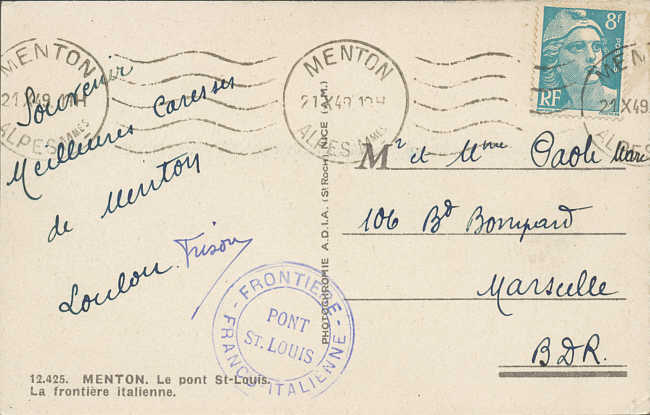 MENTON
21 X 49 12H
ALPES MMES
MENTON
21 X 49 12H
ALPES MMES
MENTON
21 X 49
ALPES
8F
POSTES
RF
Souvenir
Meilleures Caresses
de Menton
Loulou Frison
Mr et Mme Paoli Marc
106 Bd Bompard
Marseille
BDR.
PHOTOCHROMIE A.D.I.A. (St Roch) NICE (A.M.)
FRONTIERE
PONT
ST. LOUIS
FRANCO-ITALIENNE
12.425. MENTON. Le pont St-Louis.
La frontière italienne.